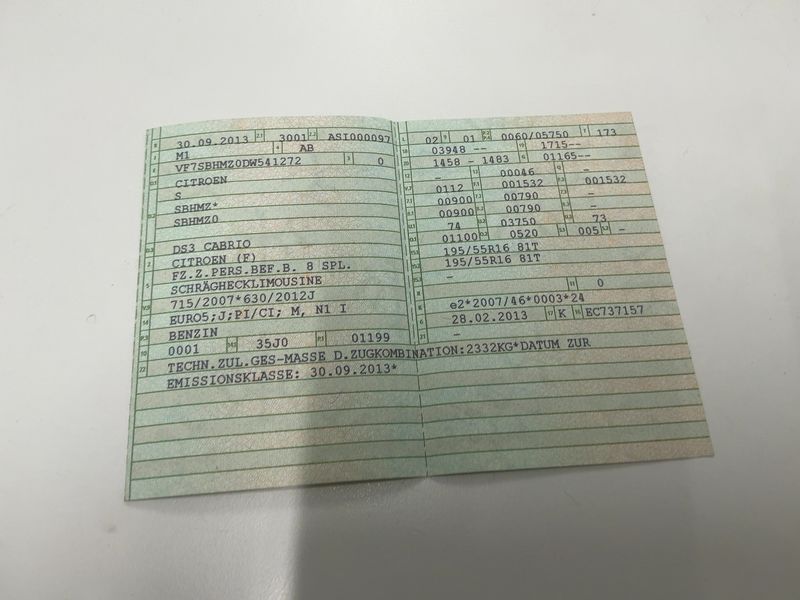 30.09.2013 3001 ASI000097
M1 AB
VF7SBHMZ0DW541272 0
CITROEN
S
SBHMZ*
SBHMZ0
DS3 CABRIO
CITROEN (F)
FZ.Z.PERS.BEF.B. 8 SPL.
SCHRÄGHECKLIMOUSINE
715/2007*630/2012J
EURO5;J;PI/CI; M, N1 I
BENZIN
0001 35J0 01199
TECHN.ZUL.GES-MASSE D.ZUGKOMBINATION:2332KG*DATUM ZUR
EMISSIONSKLASSE: 30.09.2013*
02 01 0060/05750 173
03948 -- 1715--
1458 - 1483 01165--
- 00046 -
0112 001532 001532
00900 00790 -
00900 00790 -
74 03750 73
01100 0520 005 -
195/55R16 81T
195/55R16 81T
-
0
e2*2007/46*0003*24
28.02.2013 K EC737157
-